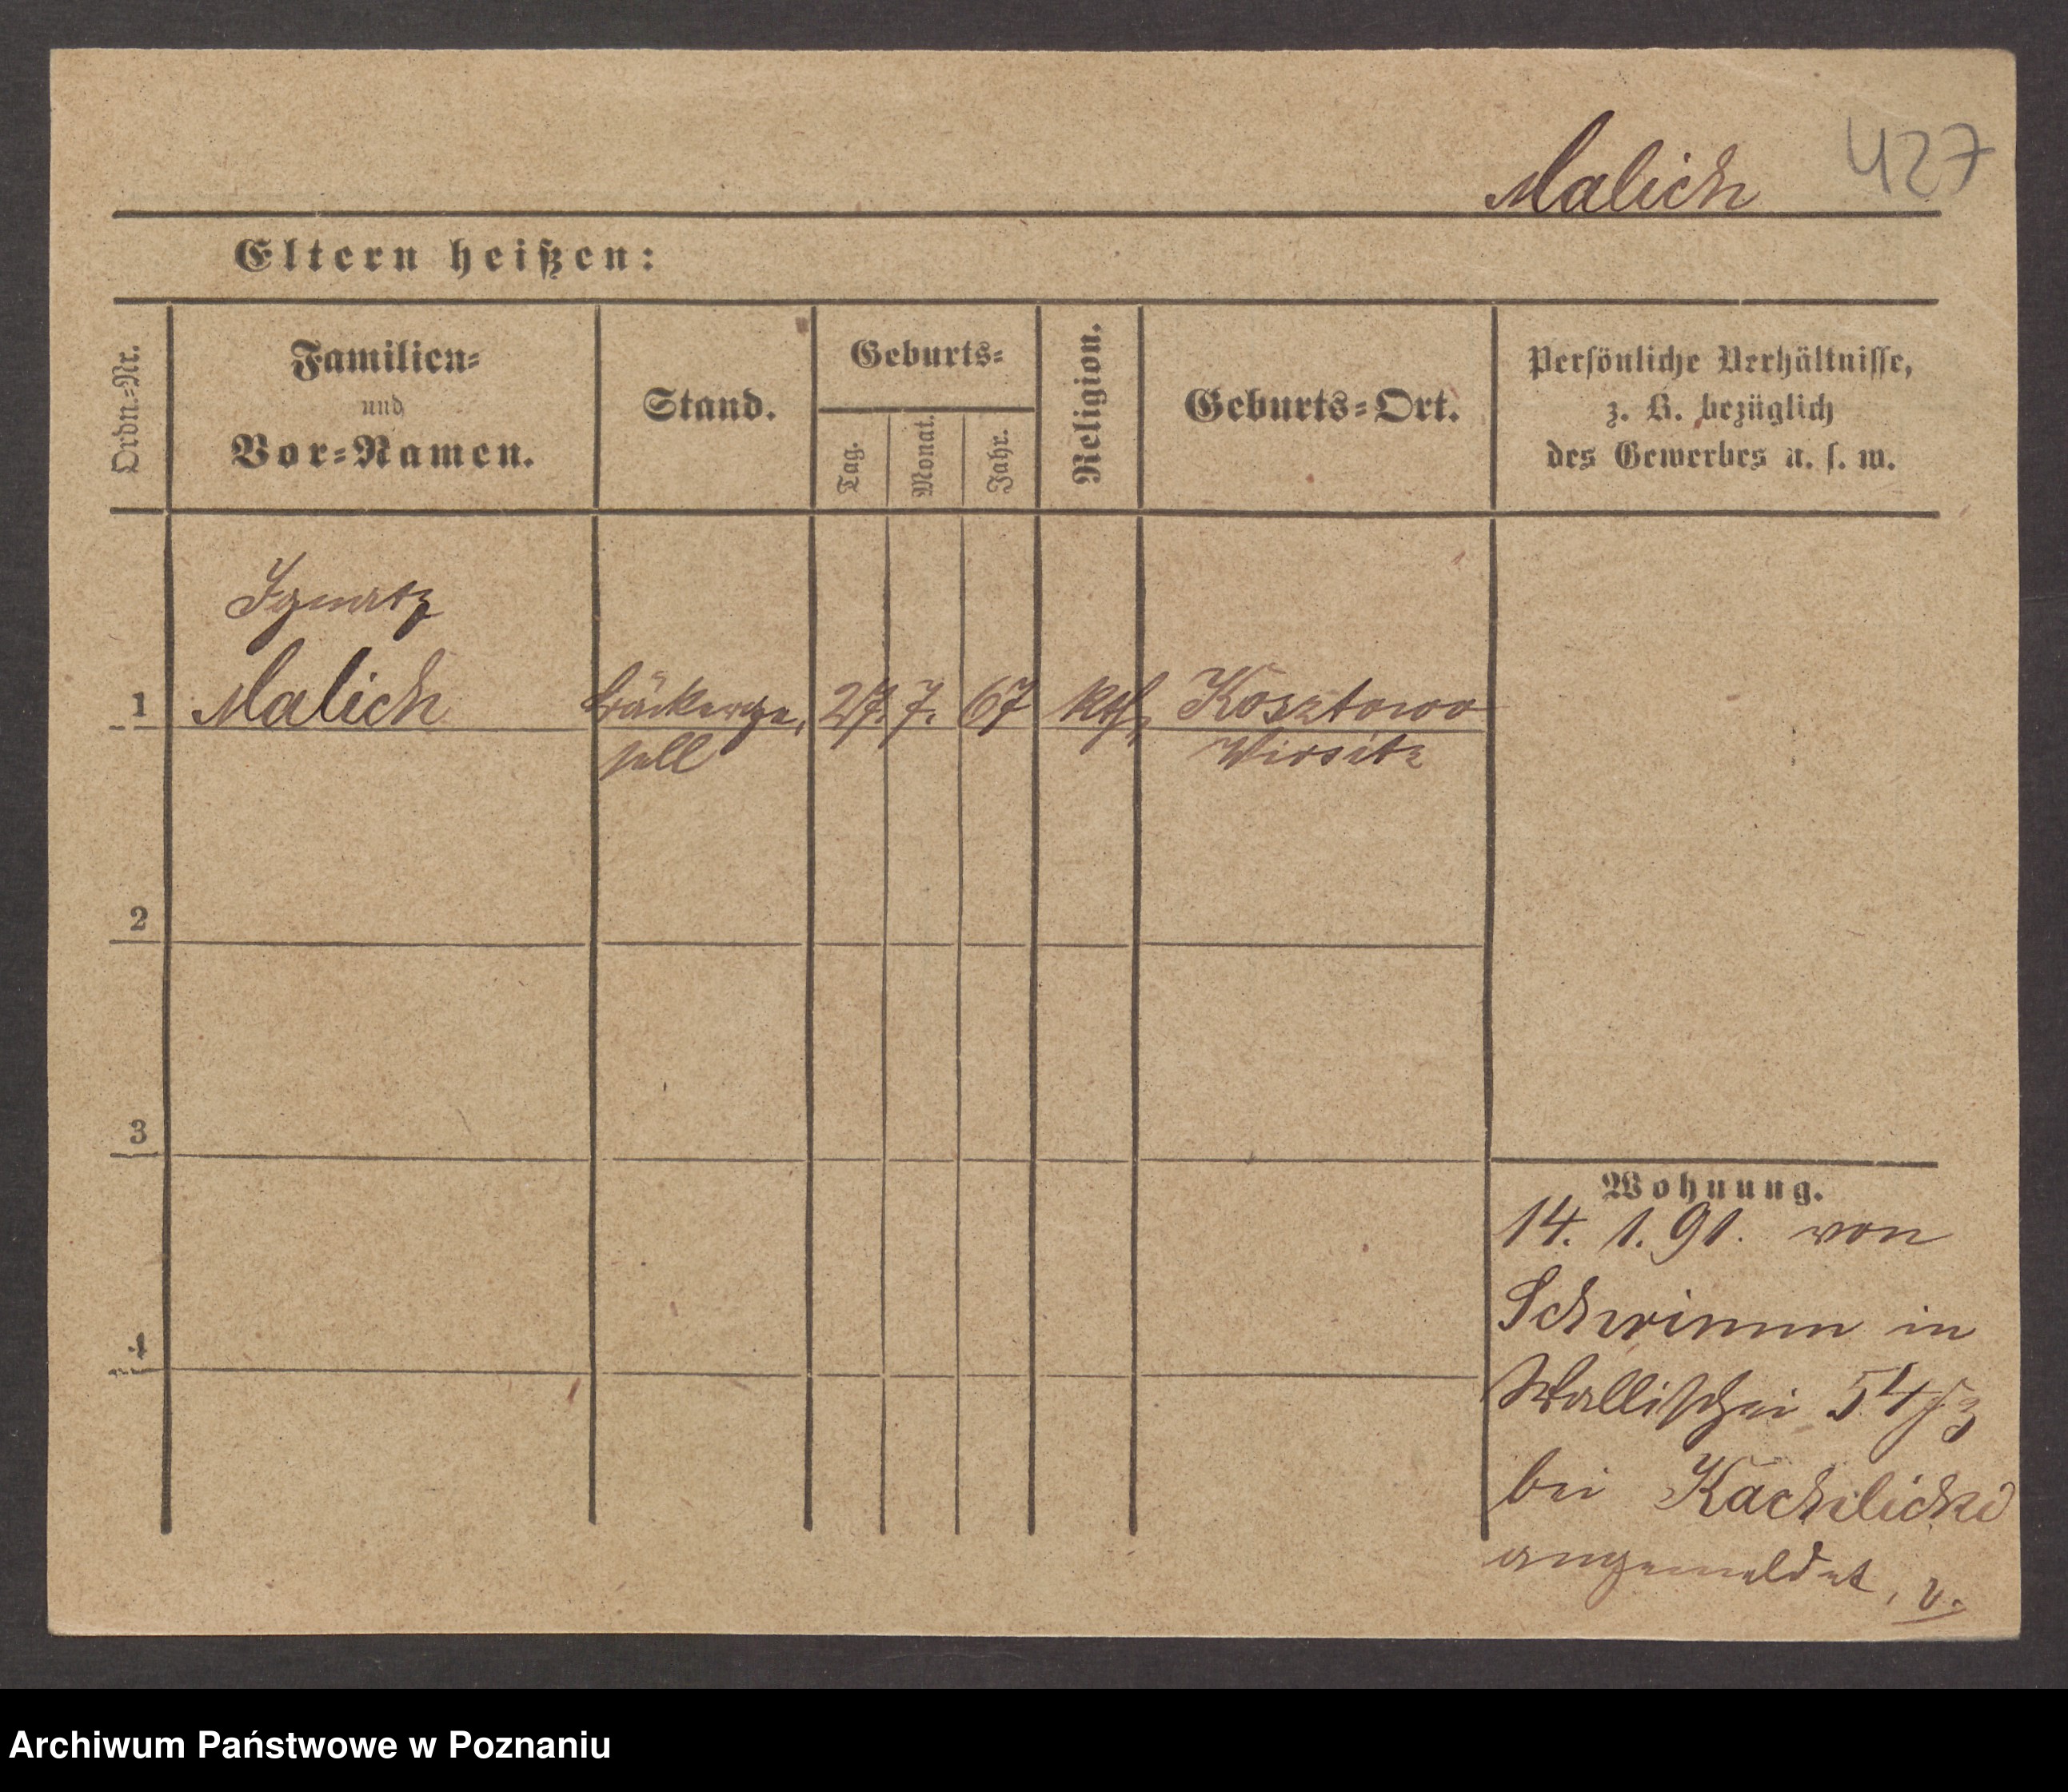 Malich 427
Eltern heißen:
Ordn.=Nr.
Familien=
und
Vor=Namen.
Stand.
Geburts=
Tag.
Monat.
Jahr.
Religion.
Geburts=Ort.
Persönliche Verhältnisse,
z. B. bezüglich
des Gewerbes u. s. w.
Ignatz
1 Malich Bäckerge, 27. 7. 67 kth, Kosztowo
sell Wirsitz
2
3
4
Wohnung.
14. 1. 91. von
in
Wallischei 54/3
bei
angemeldet, v.
Archiwum Państwowe w Poznaniu